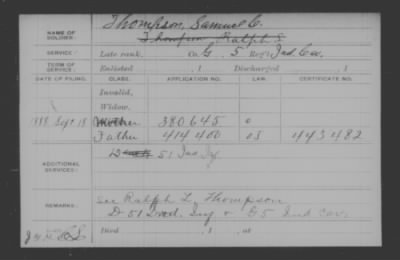 NAME OF SOLDIER: Thompson, Samuel C.
Thompson Ralph S
SERVICE: Late rank, Co. G, 5 Reg't Ind Cav.
TERM OF SERVICE: Enlisted , 1 Discharged , 1
DATE OF FILING. CLASS. APPLICATION NO. LAW. CERTIFICATE NO.
Invalid,
Widow,
Sept 18 Mother 380645 0
Father 414400 08 443482
ADDITIONAL SERVICES: D 51 Ind Inf
REMARKS: See Ralph L. Thompson
D 51 Ind. Inf + G 5 Ind Cav.
Died , 1 , at